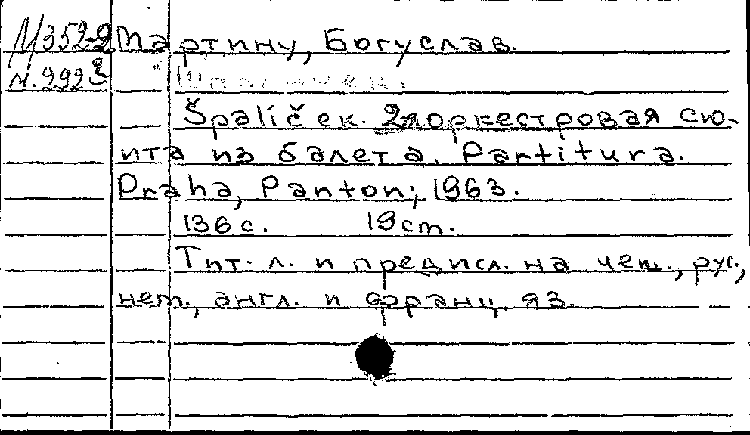 М352-2 Мартину, Богуслав.
м.9993
Špalíček. 2я оркестровая сю-
ита из балета. Partitura.
Praha, Panton, 1963.
136 с. 19 cm.
Тит. л. и предисл. на чеш., рус.,
нем., англ. и франц. яз.